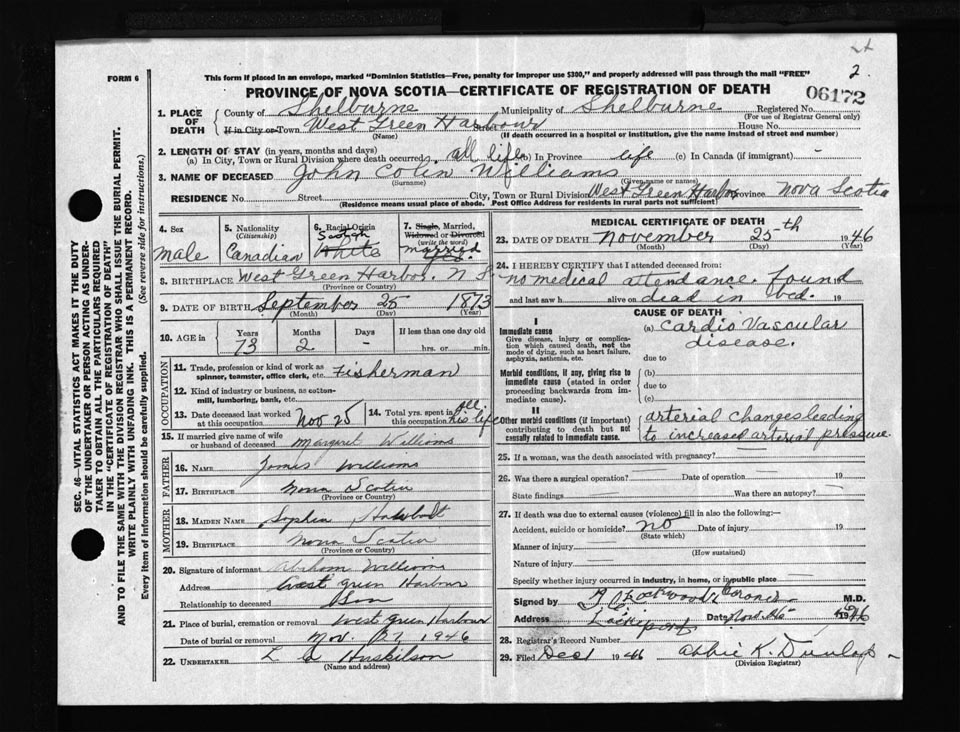 2.
FORM 6
This form if placed in an envelope, marked "Dominion Statistics—Free, penalty for improper use $300," and properly addressed will pass through the mail "FREE"
PROVINCE OF NOVA SCOTIA—CERTIFICATE OF REGISTRATION OF DEATH
06172
1. PLACE OF DEATH
County of Shelburne Municipality of Shelburne Registered No.
(For use of Registrar General only)
If in City or Town West Green Harbour House No.
(Name) (If death occurred in a hospital or institution, give the name instead of street and number)
2. LENGTH OF STAY (in years, months and days)
(a) In City, Town or Rural Division where death occurred all life (b) In Province life (c) In Canada (if immigrant) -
3. NAME OF DECEASED John Colin Williams
(Surname) (Given name or names)
RESIDENCE No. Street City, Town or Rural Division West Green Harbor Province Nova Scotia
(Residence means usual place of abode. Post Office Address for residents in rural parts not sufficient)
4. Sex
male
5. Nationality
(Citizenship)
Canadian
6. Racial Origin
Scotch
White
7. Single, Married, Widowed or Divorced
(write the word)
married
8. BIRTHPLACE West Green Harbor. N. S.
(Province or Country)
9. DATE OF BIRTH September 25 1873
(Month) (Day) (Year)
10. AGE in
Years Months Days If less than one day old
73 2 - hrs. or min.
OCCUPATION
11. Trade, profession or kind of work as spinner, teamster, office clerk, etc. Fisherman
12. Kind of industry or business, as cotton-mill, lumbering, bank, etc.
13. Date deceased last worked at this occupation Nov 25
14. Total yrs. spent in this occupation all his life
15. If married give name of wife or husband of deceased Margaret Williams
FATHER
16. NAME James Williams
17. BIRTHPLACE Nova Scotia
(Province or Country)
MOTHER
18. MAIDEN NAME Sophia
19. BIRTHPLACE Nova Scotia
(Province or Country)
20. Signature of informant Abraham Williams
Address West Green Harbour
Relationship to deceased Son
21. Place of burial, cremation or removal West Green Harbour
Date of burial or removal Nov. 27 1946
22. UNDERTAKER L Huskilson
(Name and address)
MEDICAL CERTIFICATE OF DEATH
23. DATE OF DEATH November 25th 1946
(Month) (Day) (Year)
24. I HEREBY CERTIFY that I attended deceased from:
no medical attendance. Found 19
and last saw h alive on dead in bed. 19
CAUSE OF DEATH
I
Immediate cause
Give disease, injury or complication which caused death, not the mode of dying, such as heart failure, asphyxia, asthenia, etc.
(a) Cardio Vascular disease.
due to
Morbid conditions, if any, giving rise to immediate cause (stated in order proceeding backwards from immediate cause).
(b)
due to
(c)
II
Other morbid conditions (if important) contributing to death but not causally related to immediate cause.
arterial changes leading to increased arterial pressure
25. If a woman, was the death associated with pregnancy?
26. Was there a surgical operation? Date of operation 19
State findings Was there an autopsy?
27. If death was due to external causes (violence) fill in also the following:—
Accident, suicide or homicide? no Date of injury 19
(State which)
Manner of injury
(How sustained)
Nature of injury
Specify whether injury occurred in industry, in home, or in public place
Signed by Coroner M.D.
Address Lockeport Date Nov. 26 1946
28. Registrar's Record Number
29. Filed Dec 1 1946 Abbie K. Dunlap
(Division Registrar)
SEC. 46—VITAL STATISTICS ACT MAKES IT THE DUTY
OF THE UNDERTAKER OR PERSON ACTING AS UNDER-
TAKER TO OBTAIN ALL THE PARTICULARS REQUIRED
IN THE "CERTIFICATE OF REGISTRATION OF DEATH"
AND TO FILE THE SAME WITH THE DIVISION REGISTRAR WHO SHALL ISSUE THE BURIAL PERMIT.
WRITE PLAINLY WITH UNFADING INK. THIS IS A PERMANENT RECORD.
Every item of information should be carefully supplied. (See reverse side for instructions.)